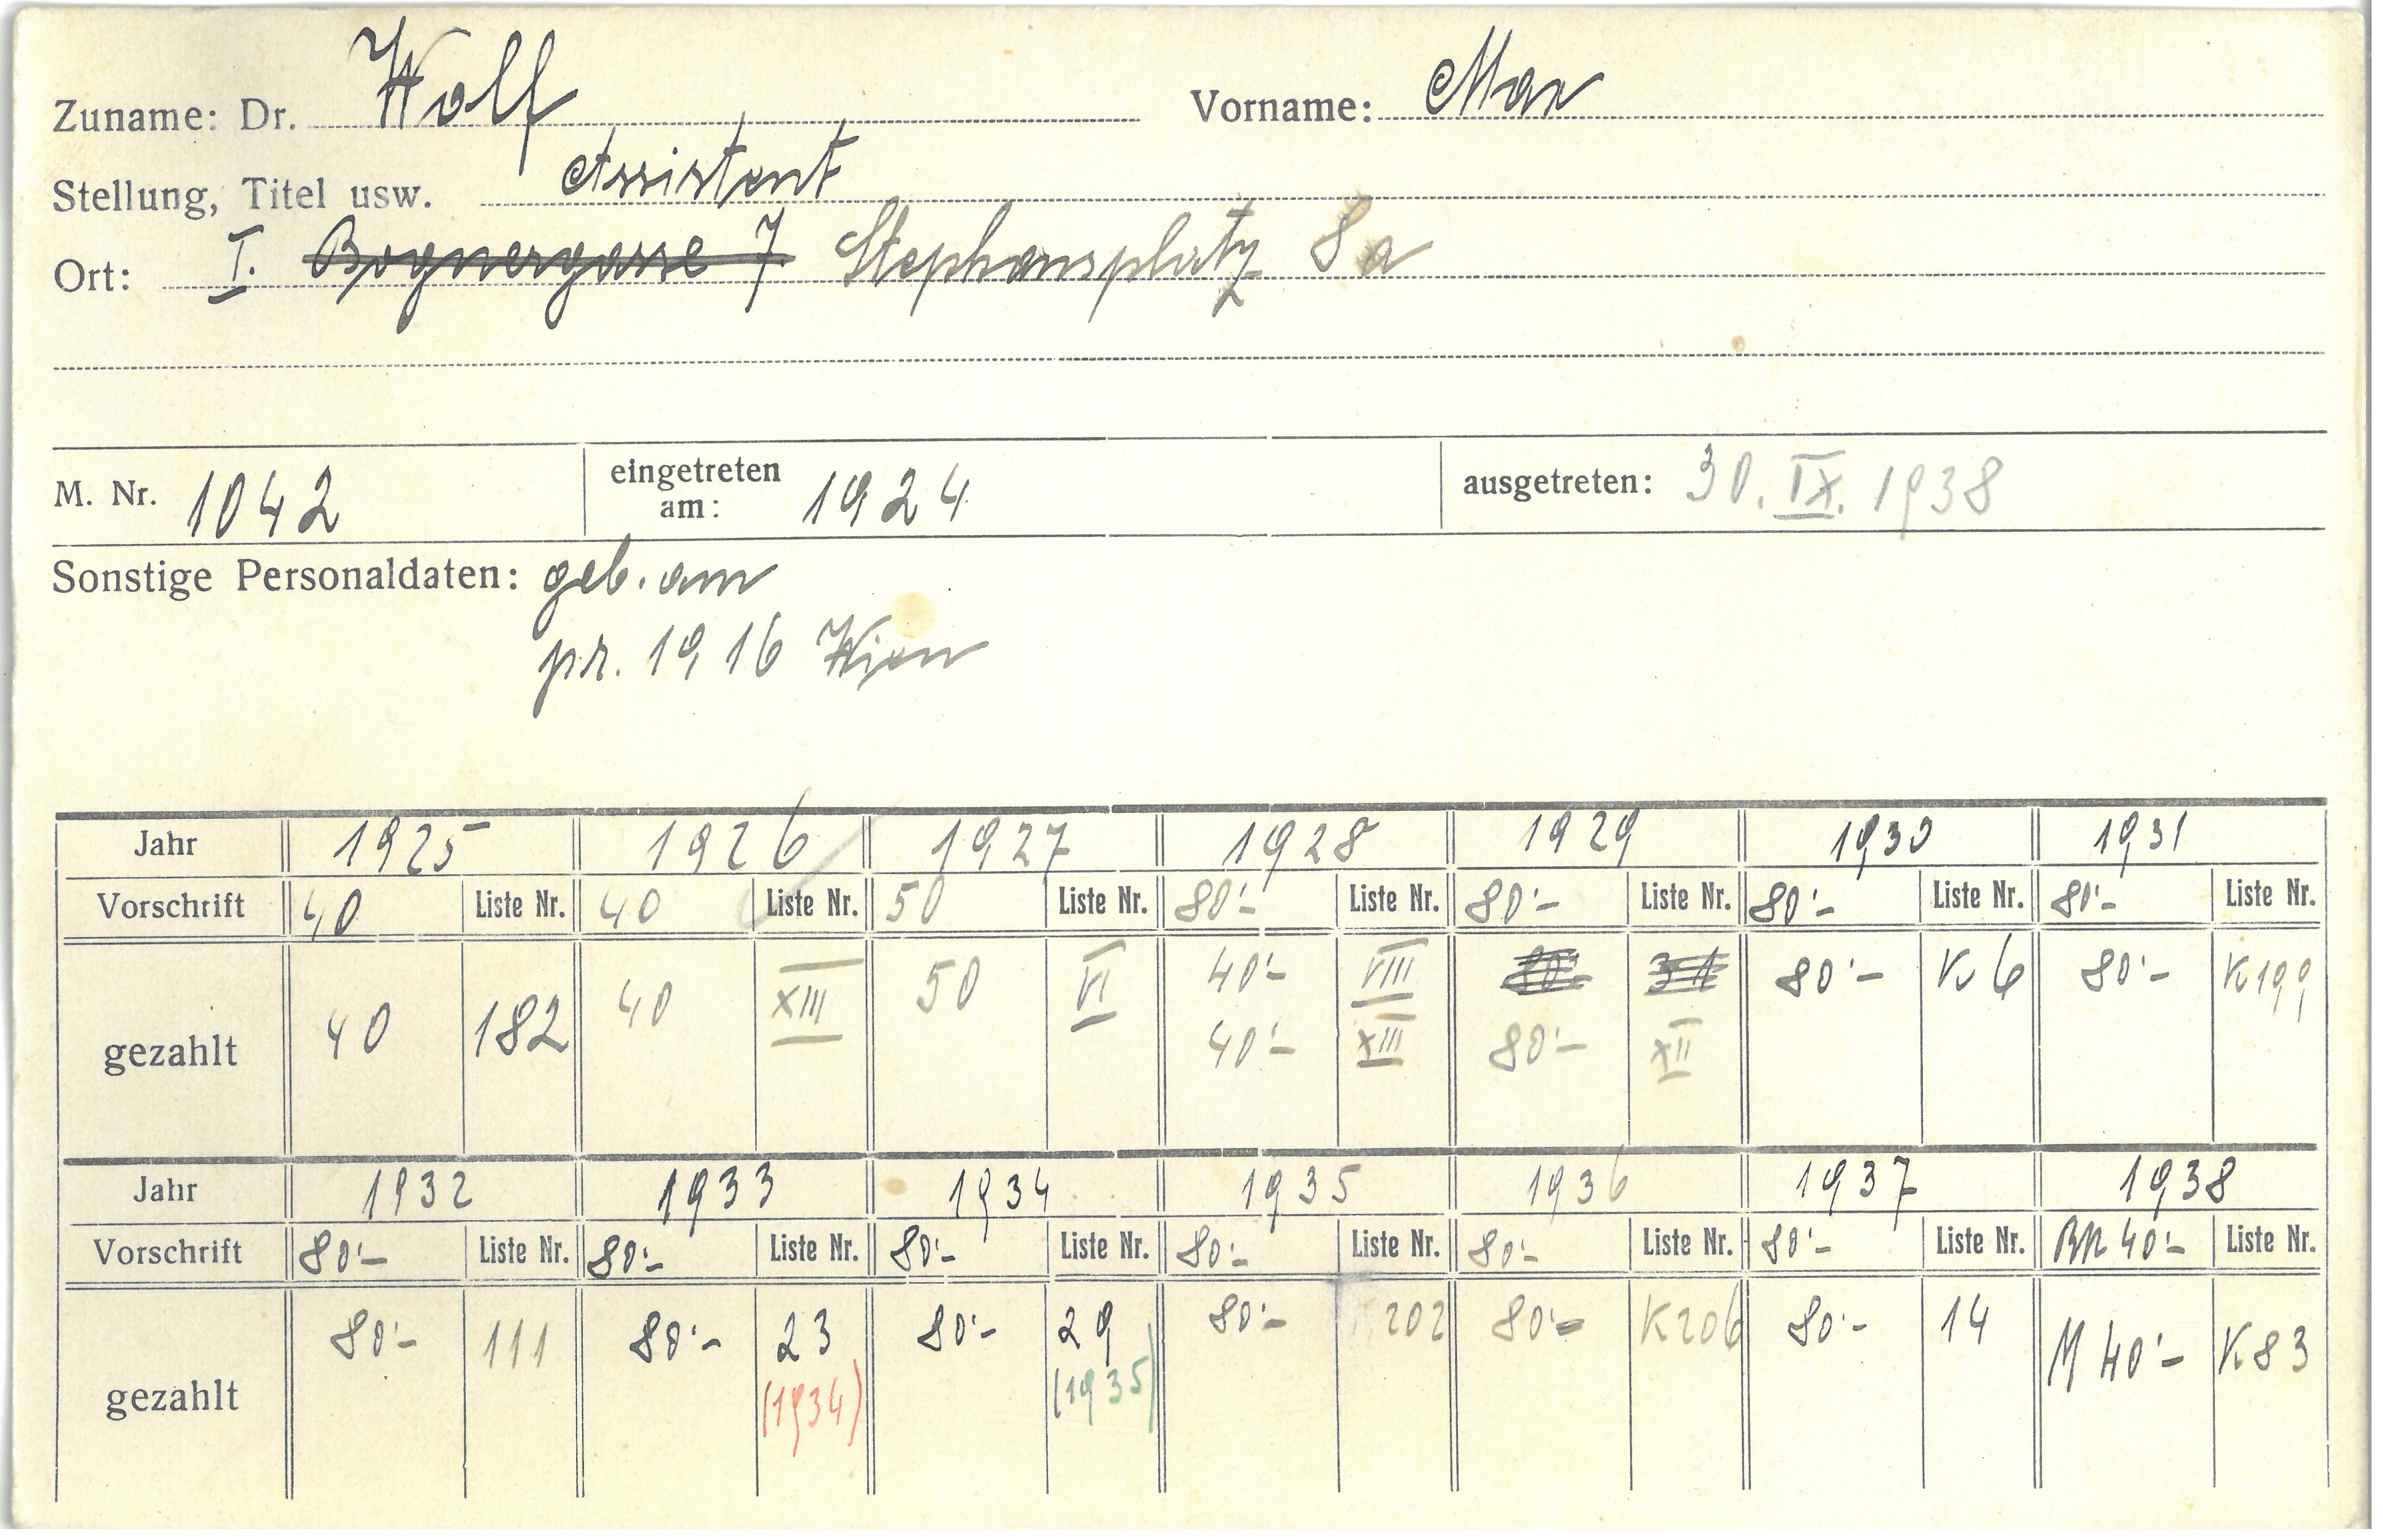 Zuname: Dr. Wolf Vorname: Max
Stellung, Titel usw. Assistent
Ort: I. Bognergasse 7. Stephansplatz 8a
M. Nr. 1042 eingetreten am: 1924 ausgetreten: 30. IX. 1938
Sonstige Personaldaten: geb. am
pr. 1916 Wien
Jahr 1925 1926 1927 1928 1929 1930 1931
Vorschrift 40 Liste Nr. 40 Liste Nr. 50 Liste Nr. 80'- Liste Nr. 80'- Liste Nr. 80'- Liste Nr. 80'- Liste Nr.
gezahlt 40 182 40 XIII 50 VI 40'- VIII 80'- 31 80'- K 6 80'- K 199
40'- XIII 80'- XII
Jahr 1932 1933 1934 1935 1936 1937 1938
Vorschrift 80'- Liste Nr. 80'- Liste Nr. 80'- Liste Nr. 80'- Liste Nr. 80'- Liste Nr. 80'- Liste Nr. 40'- Liste Nr.
gezahlt 80'- 111 80'- 23 80'- 29 80'- K202 80'- K206 80'- 14 M 40'- K83
(1934) (1935)